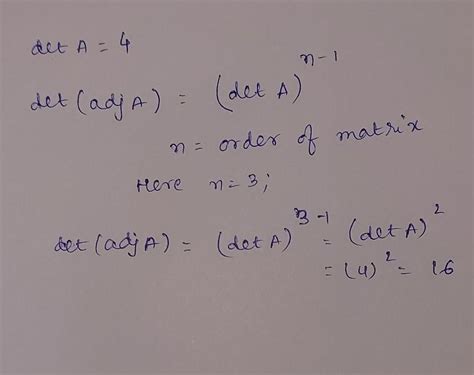 det A = 4
det (adj A) = (det A)^{n-1}
n = order of matrix
Here n = 3;
det (adj A) = (det A)^{3-1} = (det A)^2
= (4)^2 = 16